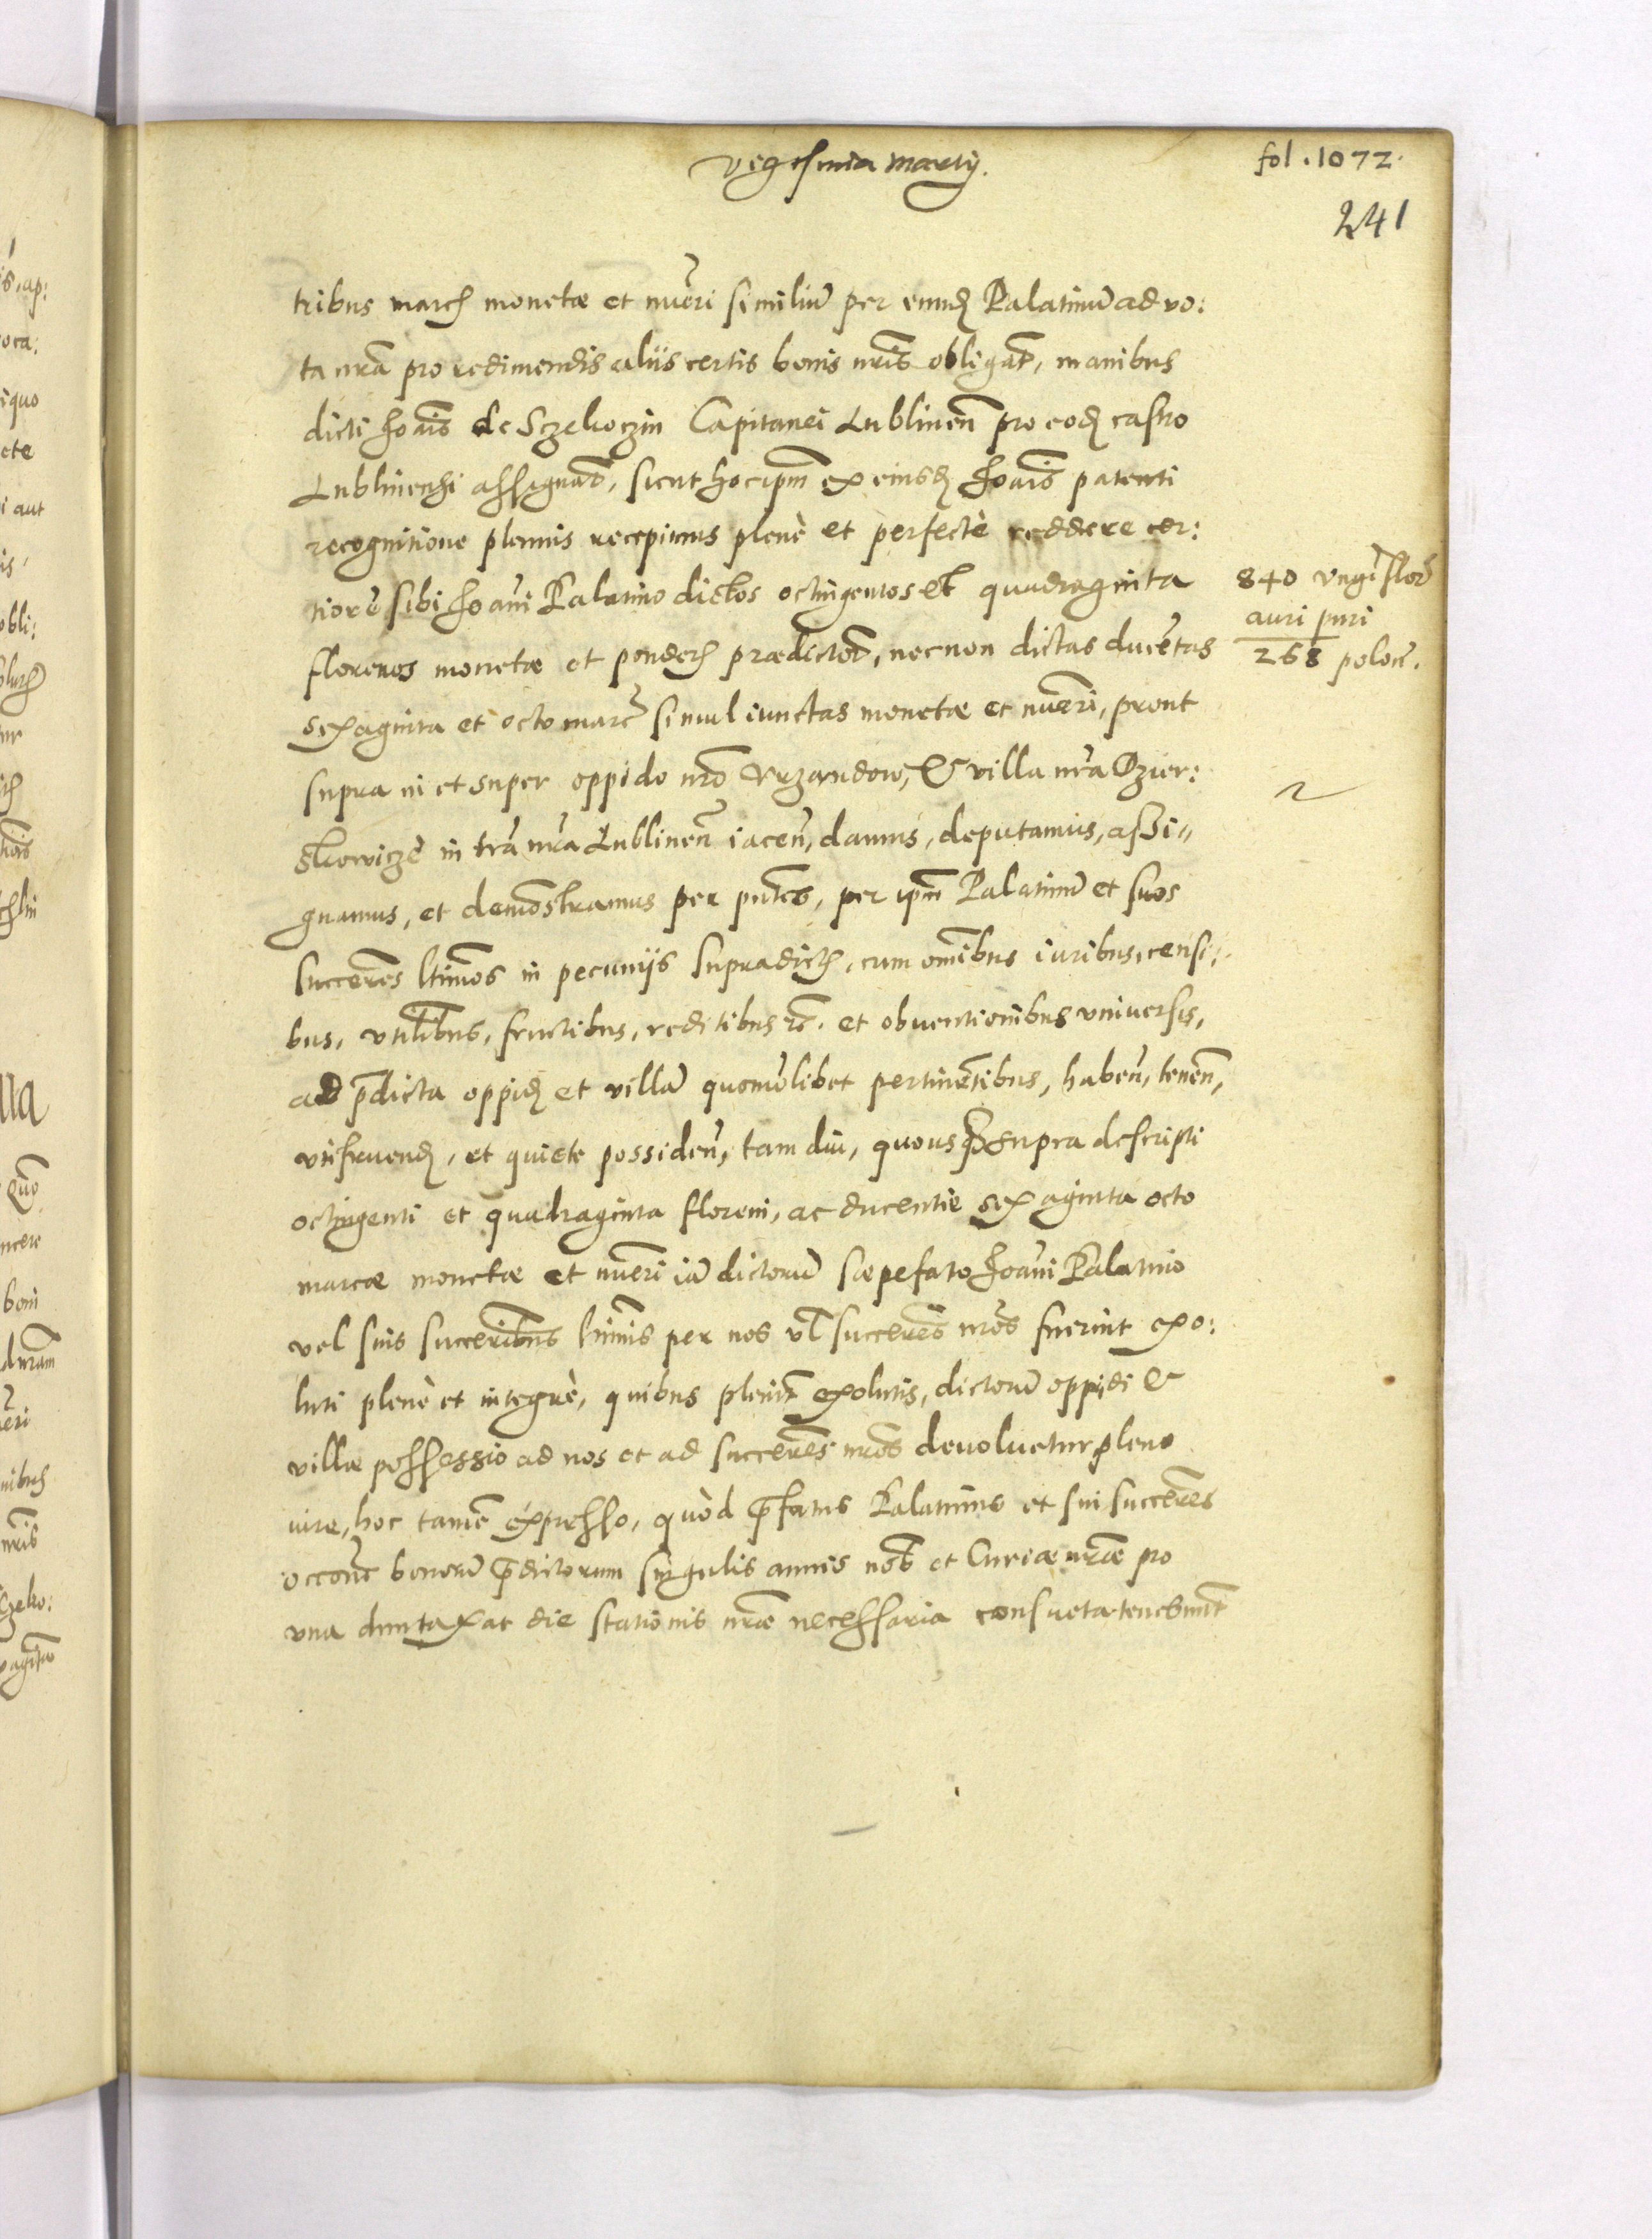 vigesima martij.
fol. 1072.
241
tribus march monetæ et nūeri similiū per eund Palatinū ad vo:
ta nrā pro redimendis aliis certis bonis nrīs obligat, manibus
dicti Joāis de Sczekoczin Capitanei Lublineñ pro eod castro
Lublinensi assignat, sicut hoc ipm ex eiusd Joāis patenti
recognitione plenius recepimus plenè et perfectè reddere cer:
tiorē sibi Joāni Palatino dictos octingentos et quadraginta
840 Vngr flor
auri puri
florenos monetæ et ponder prædictor, necnon dictas ducētas
268 polon.
sexaginta et octo marc simul iunctas monetæ et nūeri, prout
supra in et super oppido nrō Vrzandow, & villa nrā Dzier:
skowicze in trā nrā Lublineñ iaceñ, damus, deputamus, assi"
gnamus, et demōstramus per pntes, per ipm Palatinū et suos
succeres ltimos in pecunijs supradict, cum omibus iuribus, censi:
bus, vtilibus, fructibus, reditibus rc. et obventionibus vniuersis,
ad pdicta oppid et villā quomolibet pertinētibus, habeñ, teneñ,
vtifruend, et quiete possideñ, tam diu, quousq supra descripti
octingenti et quadraginta floreni, ac ducentie sexaginta octo
marcæ monetæ et nūeri iā dictorū sæpefato Joāni Palatino
vel suis succeribus ltimis per nos vl succeres nros fuerint exo:
luti plenè et integrè, quibus pleniter exolutis, dictorū oppidi &
villæ possessio ad nos et ad succeres nros deuoluetur pleno
iure, hoc tamē expresso, quòd pfatus Palatinus et sui succeres
occone bonorū pdictorum singulis annis nob et Curiæ nræ pro
vna duntaxat die stationis nræ necessaria consueta tenebunt